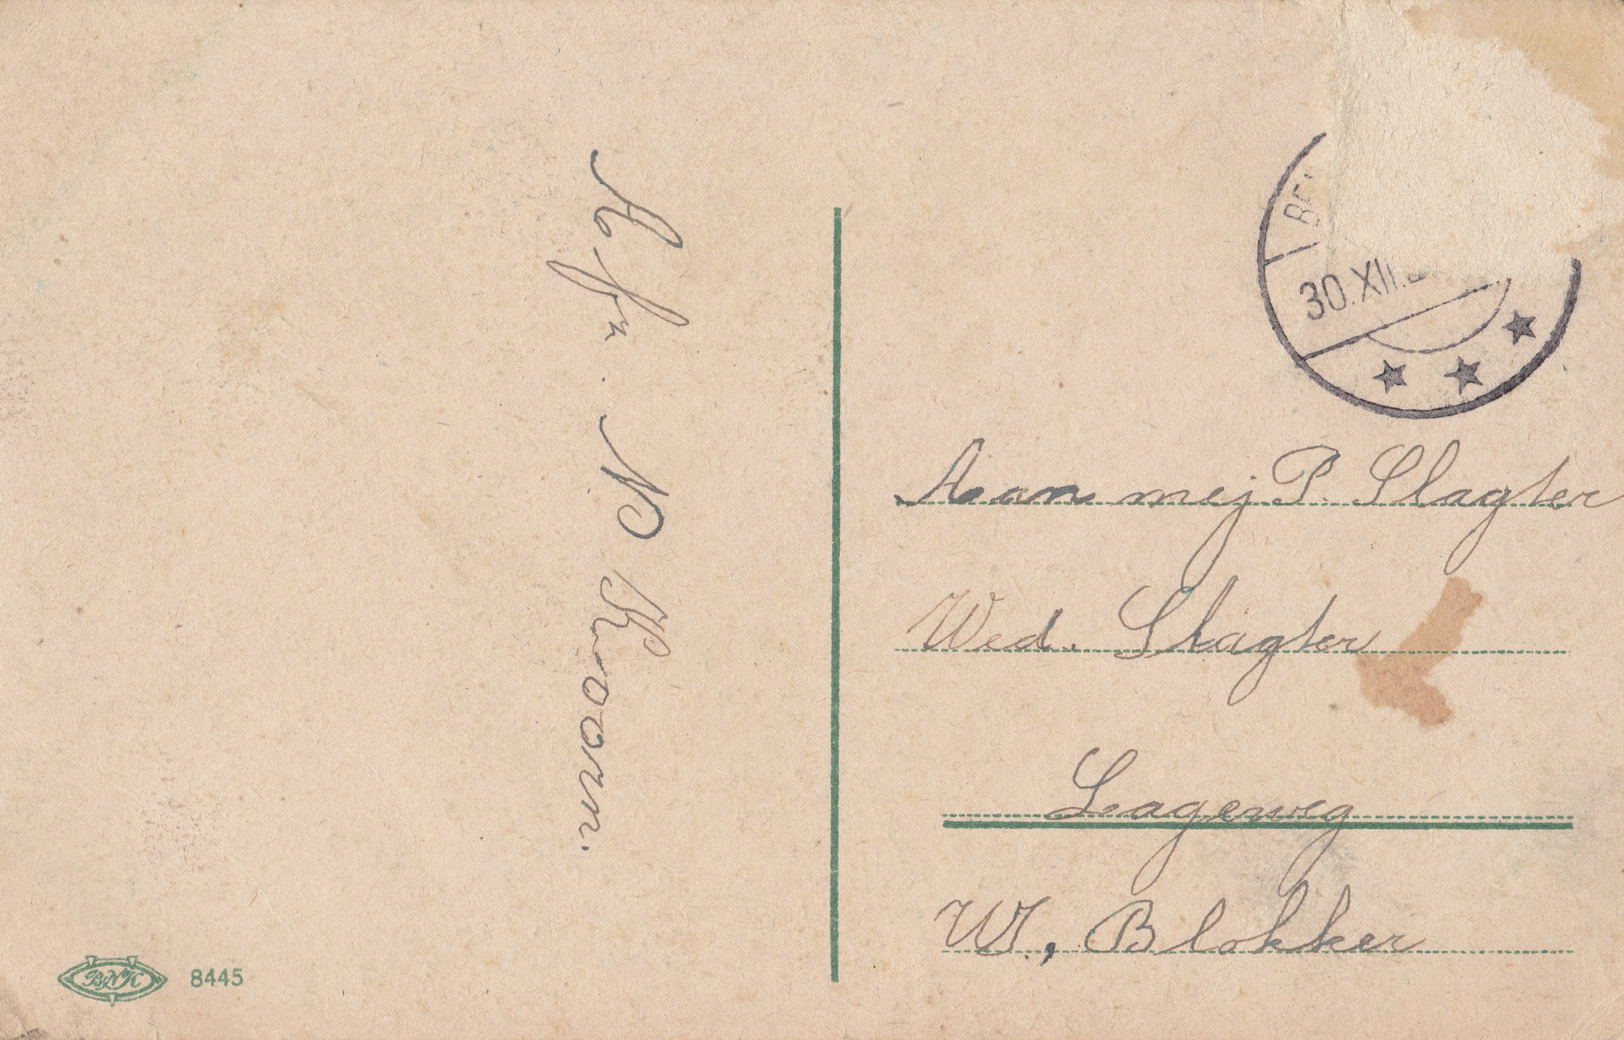 Afz. N Koorn.
BE
30.XII.
Aan mej P. Slagter
Wed. Slagter
Lageweg
W., Blokker
BNK 8445